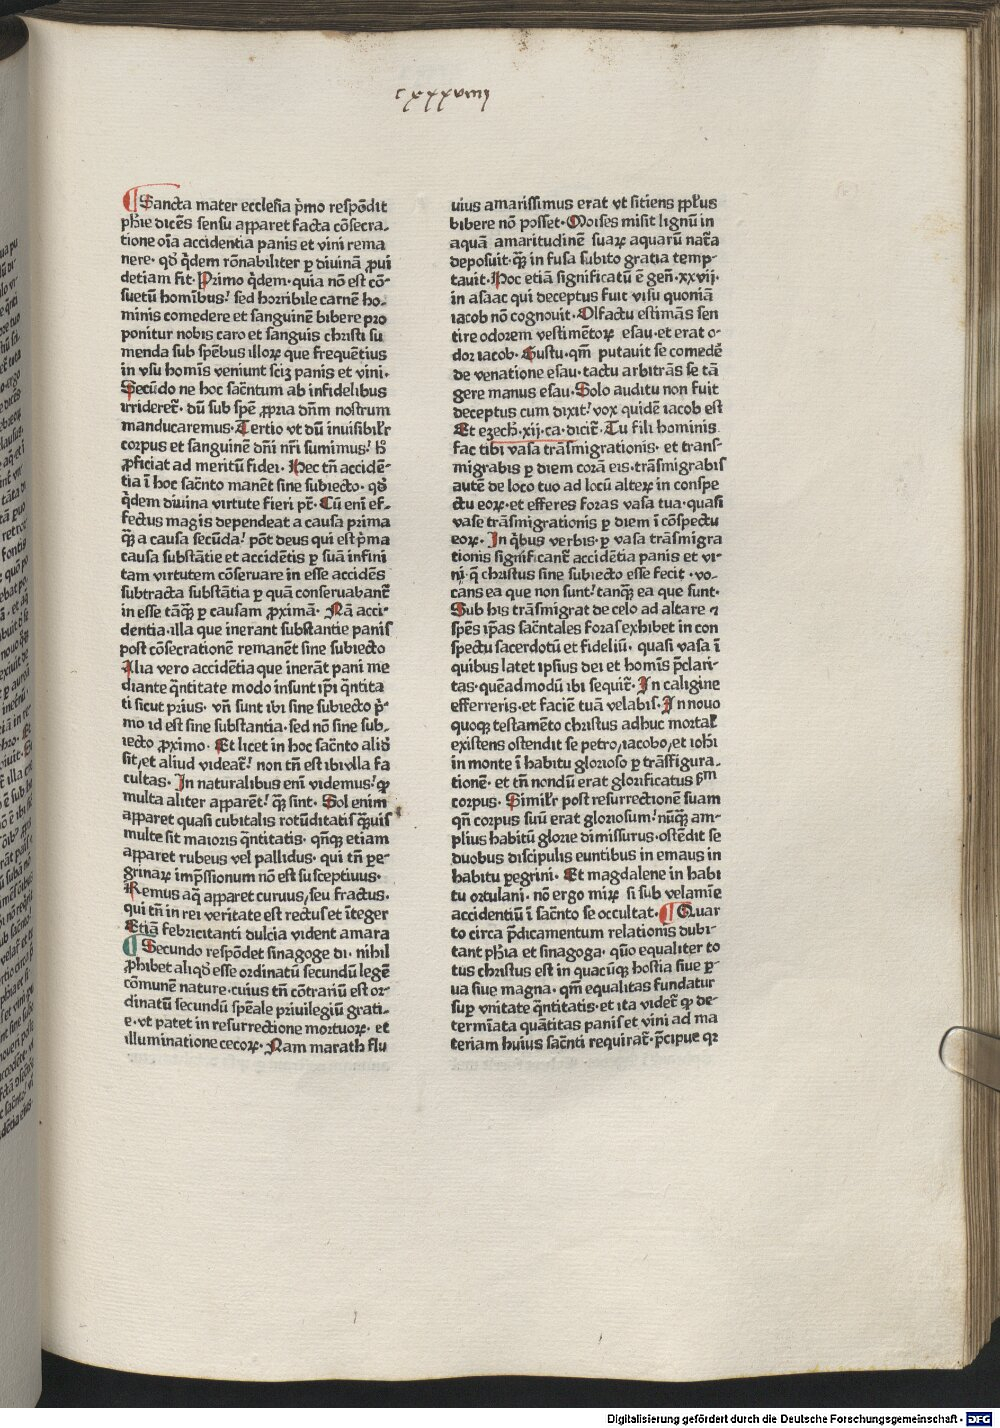 cxxxviiij
¶ Sancta mater ecclesia p̄mo respōdit
ph̄ie dicēs sensu apparet facta cōsecra-
tione oīa accidentia panis et vini rema
nere· qd̛ q̄dem rōnabiliter ꝑ diuinā ꝓui
detiam fit· Primo q̄dem· quia nō est cō-
suetū hominibus! sed horribile carnē ho-
minis comedere et sanguinē bibere pro
ponitur nobis caro et sanguis christi su
menda sub spēbus illoꝝ que frequētius
in vsu homīs veniunt sciꝫ panis et vini·
Secūdo ne hoc sacr̄ntum ab infidelibus
irrideret̄· dū sub spē ꝓpria dn̄m nostrum
manducaremus· Tertio vt dū inuisibilr̄
corpus et sanguinē dn̄i nr̄i sumimus! h̄
ꝓficiat ad meritū fidei· Hec tn̄ accidē-
tia ī hoc sacn̄to manēt sine subiecto· qd̛
q̄dem diuina virtute fieri pt̄· Cū enī ef-
fectus magis dependeat a causa prima
ꝙ̄ a causa secūda! pōt deus qui est p̄ma
causa substātie et accidētis ꝑ suā infini
tam virtutem cōseruare in esse accidēs
subtracta substātia ꝑ quā conseruabant̄
in esse tāꝙ̄ ꝑ causam ꝓximā· Nā acci-
dentia illa que inerant substantie panis
post cōsecrationē remanēt sine subiecto
Alia vero accidētia que inerāt pani me
diante q̄ntitate modo insunt ip̄i q̄ntita
ti sicut prius· vn̄ sunt ibi sine subiecto p̄-
mo id est sine substantia· sed nō sine sub-
iecto ꝓximo· Et licet in hoc sacn̄to aliō
sit/ et aliud videat̄! non tn̄ est ibi vlla fa
cultas· In naturalibus enī videmus! ꝙ
multa aliter apparēt! ꝙ̄ sint· Sol enim
apparet quasi cubitalis rotūditatis ꝙ̄uis
multe sit maioris q̄ntitatis· qn̄ꝗ etiam
apparet rubeus vel pallidus· qui tn̄ pe-
grinaꝝ imp̄ssionum nō est susceptiuus·
Remus aq̄ apparet curuus/ seu fractus·
qui tn̄ in rei veritate est rectus et īteger
Etiā febricitanti dulcia vident amara
¶ Secundo respōdet sinagoge di· nihil
ꝓhibet aliqd̛ esse ordinatū secundū legē
cōmunē nature· cuius tn̄ cōtrariū est or-
dinatū secundū spēale priuilegiū grati-
e· vt patet in resurrectione mortuoꝝ· et
illuminatione cecoꝝ· Nam marath flu
uius amarissimus erat vt sitiens ppl̛us
bibere nō posset· Moises misit lignū in
aquā amaritudinē suaꝝ aquarū nat̄a
deposuit· ꝙ̄ in fusa subito gratia temp-
tauit· Hoc etiā significatū ē gen̄· xxvij·
in asaac qui deceptus fuit visu quoniā
iacob nō cognouit· Olfactu estimās sen
tire odorem vestimētoꝝ esau· et erat o-
dor iacob· Gustu· qm̄ putauit se comedē
de venatione esau· tactu arbitrās se tā
gere manus esau· Solo auditu non fuit
deceptus cum dixit! vox quidē iacob est
Et eꝫech̄· xij· ca· dicit̄· Tu fili hominis
fac tibi vasa trāsmigrationis· et trans-
migrabis ꝑ diem corā eis· trāsmigrabis
autē de loco tuo ad locū alteꝝ in conspe
ctu eoꝝ· et efferes foras vasa tua· quasi
vase trāsmigrationis ꝑ diem ī cōspectu
eoꝝ· In q̄bus verbis· ꝑ vasa trāsmigra
tionis significant̄ accidētia panis et vi-
ni/ q̄ christus sine subiecto esse fecit· vo-
cans ea que non sunt! tanꝙ̄ ea que sunt·
Sub his trāsmigrat de celo ad altare ⁊
spēs ip̄as sacn̄tales foras exhibet in con
spectu sacerdotū et fideliū· quasi vasa ī
quibus latet ipsius dei et homīs p̄clari-
tas· quēadmodū ibi sequit̄· In caligine
efferreris· et faciē tuā velabis· In nouo
quoꝗ testamēto christus adhuc mortal̛
existens ostendit se petro/ iacobo/ et ioh̄i
in monte ī habitu glorioso ꝑ trāsfigura-
tionē· et tn̄ nondū erat glorificatus ẜm
corpus· Similr̄ post resurrectionē suam
qn̄ corpus suū erat gloriosum! nūꝙ̄ am-
plius habitū glorie dimissurus· ostēdit se
duobus discipulis euntibus in emaus in
habitu ꝑegrini· Et magdalene in habi
tu ortulani· nō ergo miꝝ si sub velamīe
accidentiū ī sacn̄to se occultat· ¶ Quar
to circa p̄dicamentum relationis dubi-
tant ph̄ia et sinagoga· quō equaliter to
tus christus est in quacūꝗ hostia siue ꝑ-
ua siue magna· qm̄ equalitas fundatur
suꝑ vnitate q̄ntitatis· et ita videt̄ ꝙ de-
termīata quātitas panis et vini ad ma
teriam huius sacn̄ti requirat̄· p̄cipue qꝛ
Digitalisierung gefördert durch die Deutsche Forschungsgemeinschaft - DFG